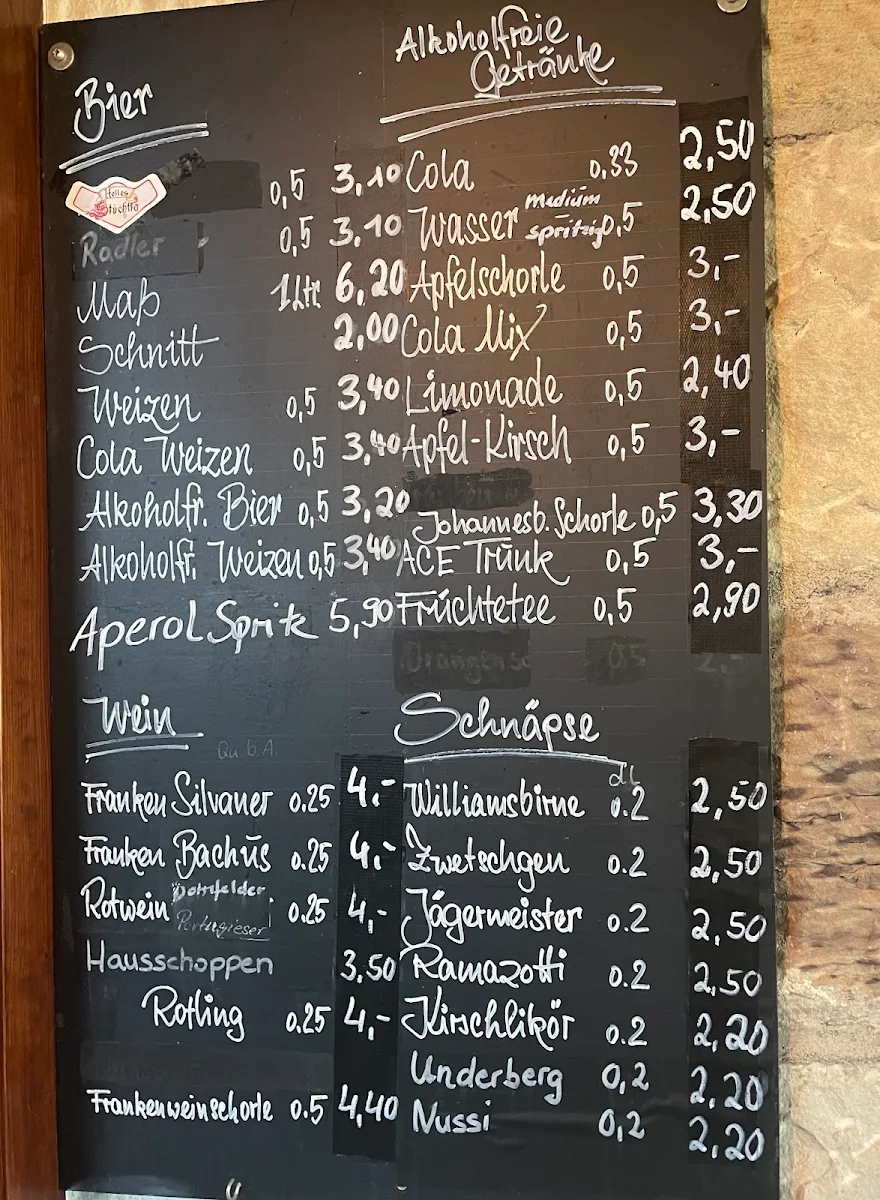 Bier
Helles 0,5 3,10
Radler 0,5 3,10
Maß 1Ltr 6,20
Schnitt 2,00
Weizen 0,5 3,40
Cola Weizen 0,5 3,40
Alkoholfr. Bier 0,5 3,20
Alkoholfr. Weizen 0,5 3,40
Aperol Spritz 5,90
Alkoholfreie
Getränke
Cola 0,33 2,50
Wasser medium spritzig 0,5 2,50
Apfelschorle 0,5 3,-
Cola Mix 0,5 3,-
Limonade 0,5 2,40
Apfel-Kirsch 0,5 3,-
Johannesb. Schorle 0,5 3,30
ACE Trunk 0,5 3,-
Früchtetee 0,5 2,90
Wein
Qu.b.A.
Franken Silvaner 0.25 4,-
Franken Bachus 0.25 4,-
Rotwein Dornfelder Portugieser 0.25 4,-
Hausschoppen 3.50
Rotling 0.25 4,-
Frankenweinschorle 0.5 4,40
Schnäpse
dl
Williamsbirne 0.2 2,50
Zwetschgen 0.2 2,50
Jägermeister 0.2 2,50
Ramazotti 0.2 2,50
Kirschlikör 0.2 2,20
Underberg 0,2 2,20
Nussi 0,2 2,20